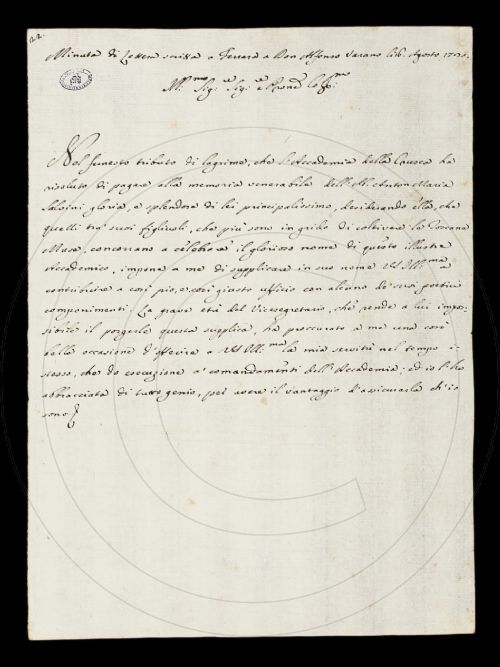 22.
Minuta di Lettera scritta a Ferrara a Don Alfonso Varano li 6. Agosto
Ill:mo Sig:re Sig:re e Pron:e Col:mo
Nel funesto tributo di lagrime, che l'Accademia della Crusca ha
risoluto di pagare alla memoria venerabile dell'Ab. Anton Maria
Salvini gloria, e splendore di lei principalissimo, desiderando ella, che
quelli tra' suoi figliuoli, che più sono in grido di coltivare le Toscane
Muse, concorrano a celebrare il glorioso nome di questo illustre
Accademico, impone a me di supplicare in suo nome VS Ill:ma a
contribuire a così pio, e così giusto ufficio con alcuno de' suoi poetici
componimenti. La grave età del Vicesegretario, che rende a lui impos-
sibile il porgerle questa supplica, ha proccurato a me una così
bella occasione d'offerire a VS Ill:ma la mia servitù nel tempo i-
stesso, che do esecuzione a' comandamenti dell'Accademia: ed io l'ho
abbracciata di tutto genio, per avere il vantaggio d'assicurarla ch'io
sono